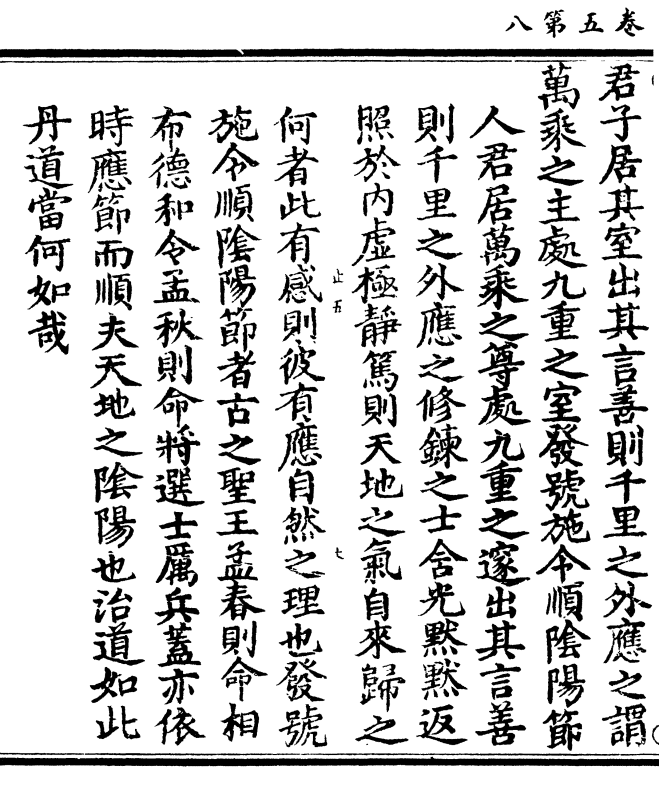 卷五第八
君子居其室出其言善則千里之外應之謂
萬乘之主處九重之室發號施令順陰陽節
人君居萬乘之尊處九重之邃出其言善
則千里之外應之修鍊之士含光默默返
照於内虛極靜篤則天地之氣自來歸之
止五
七
何者此有感則彼有應自然之理也發號
施令順陰陽節者古之聖王孟春則命相
布德和令孟秋則命將選士厲兵蓋亦依
時應節而順夫天地之陰陽也治道如此
丹道當何如哉